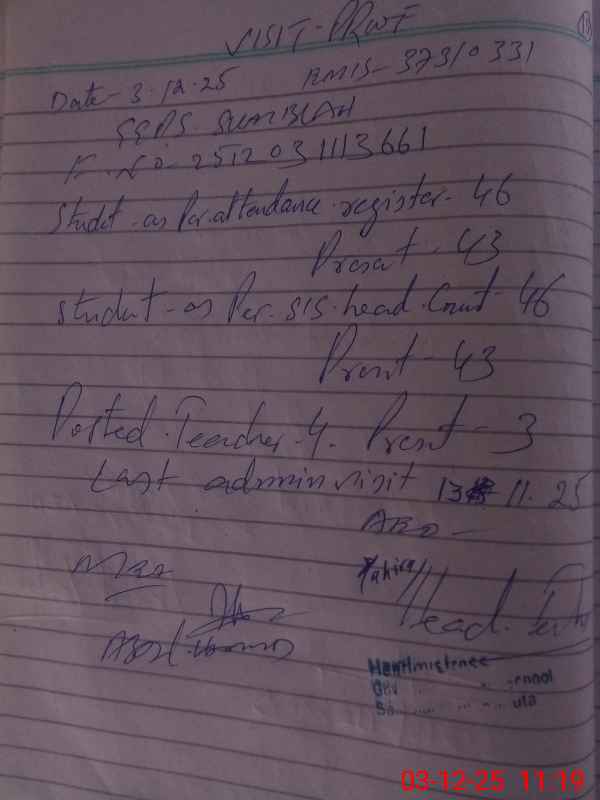 VISIT-PROOF
Date- 3.12.25 EMIS- 37310331
GGPS. SUMBLAH
F. No- 251203 1113661
Studet-as Per attendance register- 46
Present- 43
Student-as Per SIS head Count- 46
Present- 43
Posted Teacher- 4. Present- 3
Last admin visit 13 11.25
AEO-
Tahira
Head.
Headmistress
03-12-25 11:19